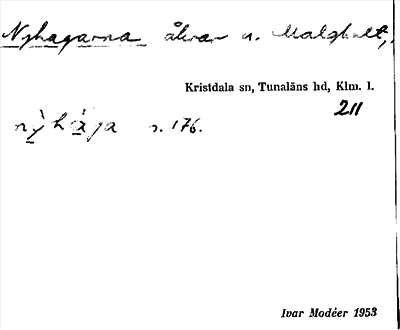 Nyhagarna åkrar u. Malghult,
Kristdala sn, Tunaläns hd, Klm. l.
211
nỳhàga s. 176.
Ivar Modéer 1953